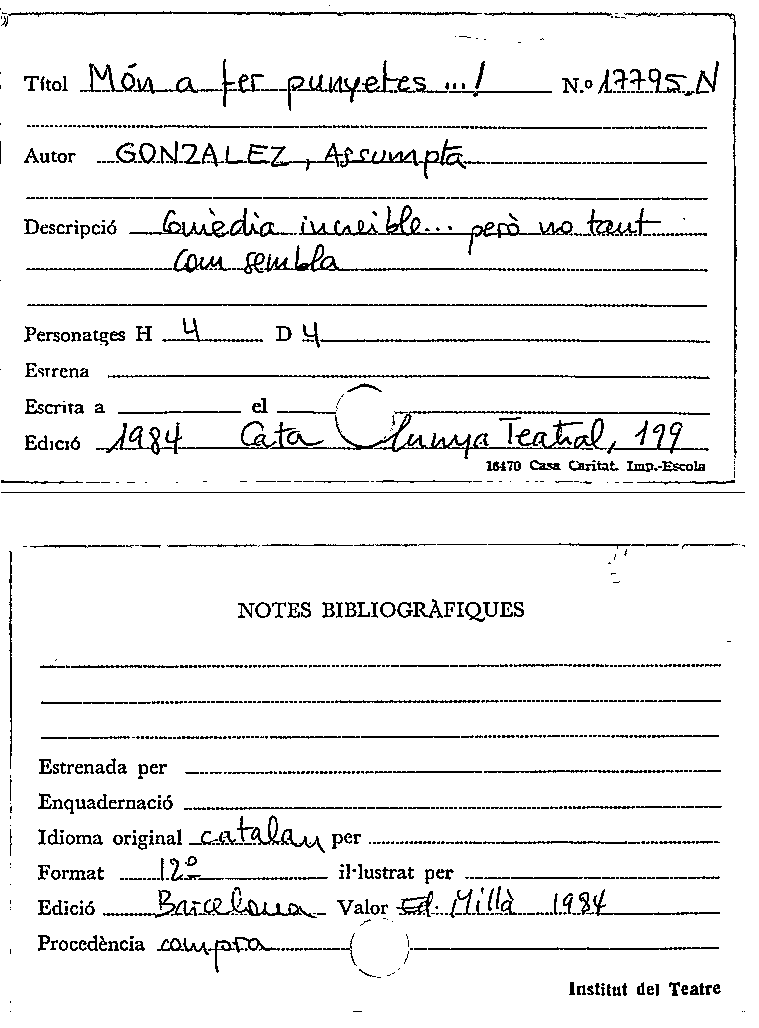 Títol Món a fer punyetes...! N.º 17795-N
Autor GONZALEZ, Assumpta
Descripció Comèdia increible... però no tant
com sembla
Personatges H 4 D 4
Estrena
Escrita a el
Edició 1984 Catalunya Teatral, 199
16470 Casa Caritat. Imp.-Escola
NOTES BIBLIOGRÀFIQUES
Estrenada per
Enquadernació
Idioma original catalan per
Format 12º il·lustrat per
Edició Barcelona Valor Ed. Millà 1984
Procedència compra
Institut del Teatre